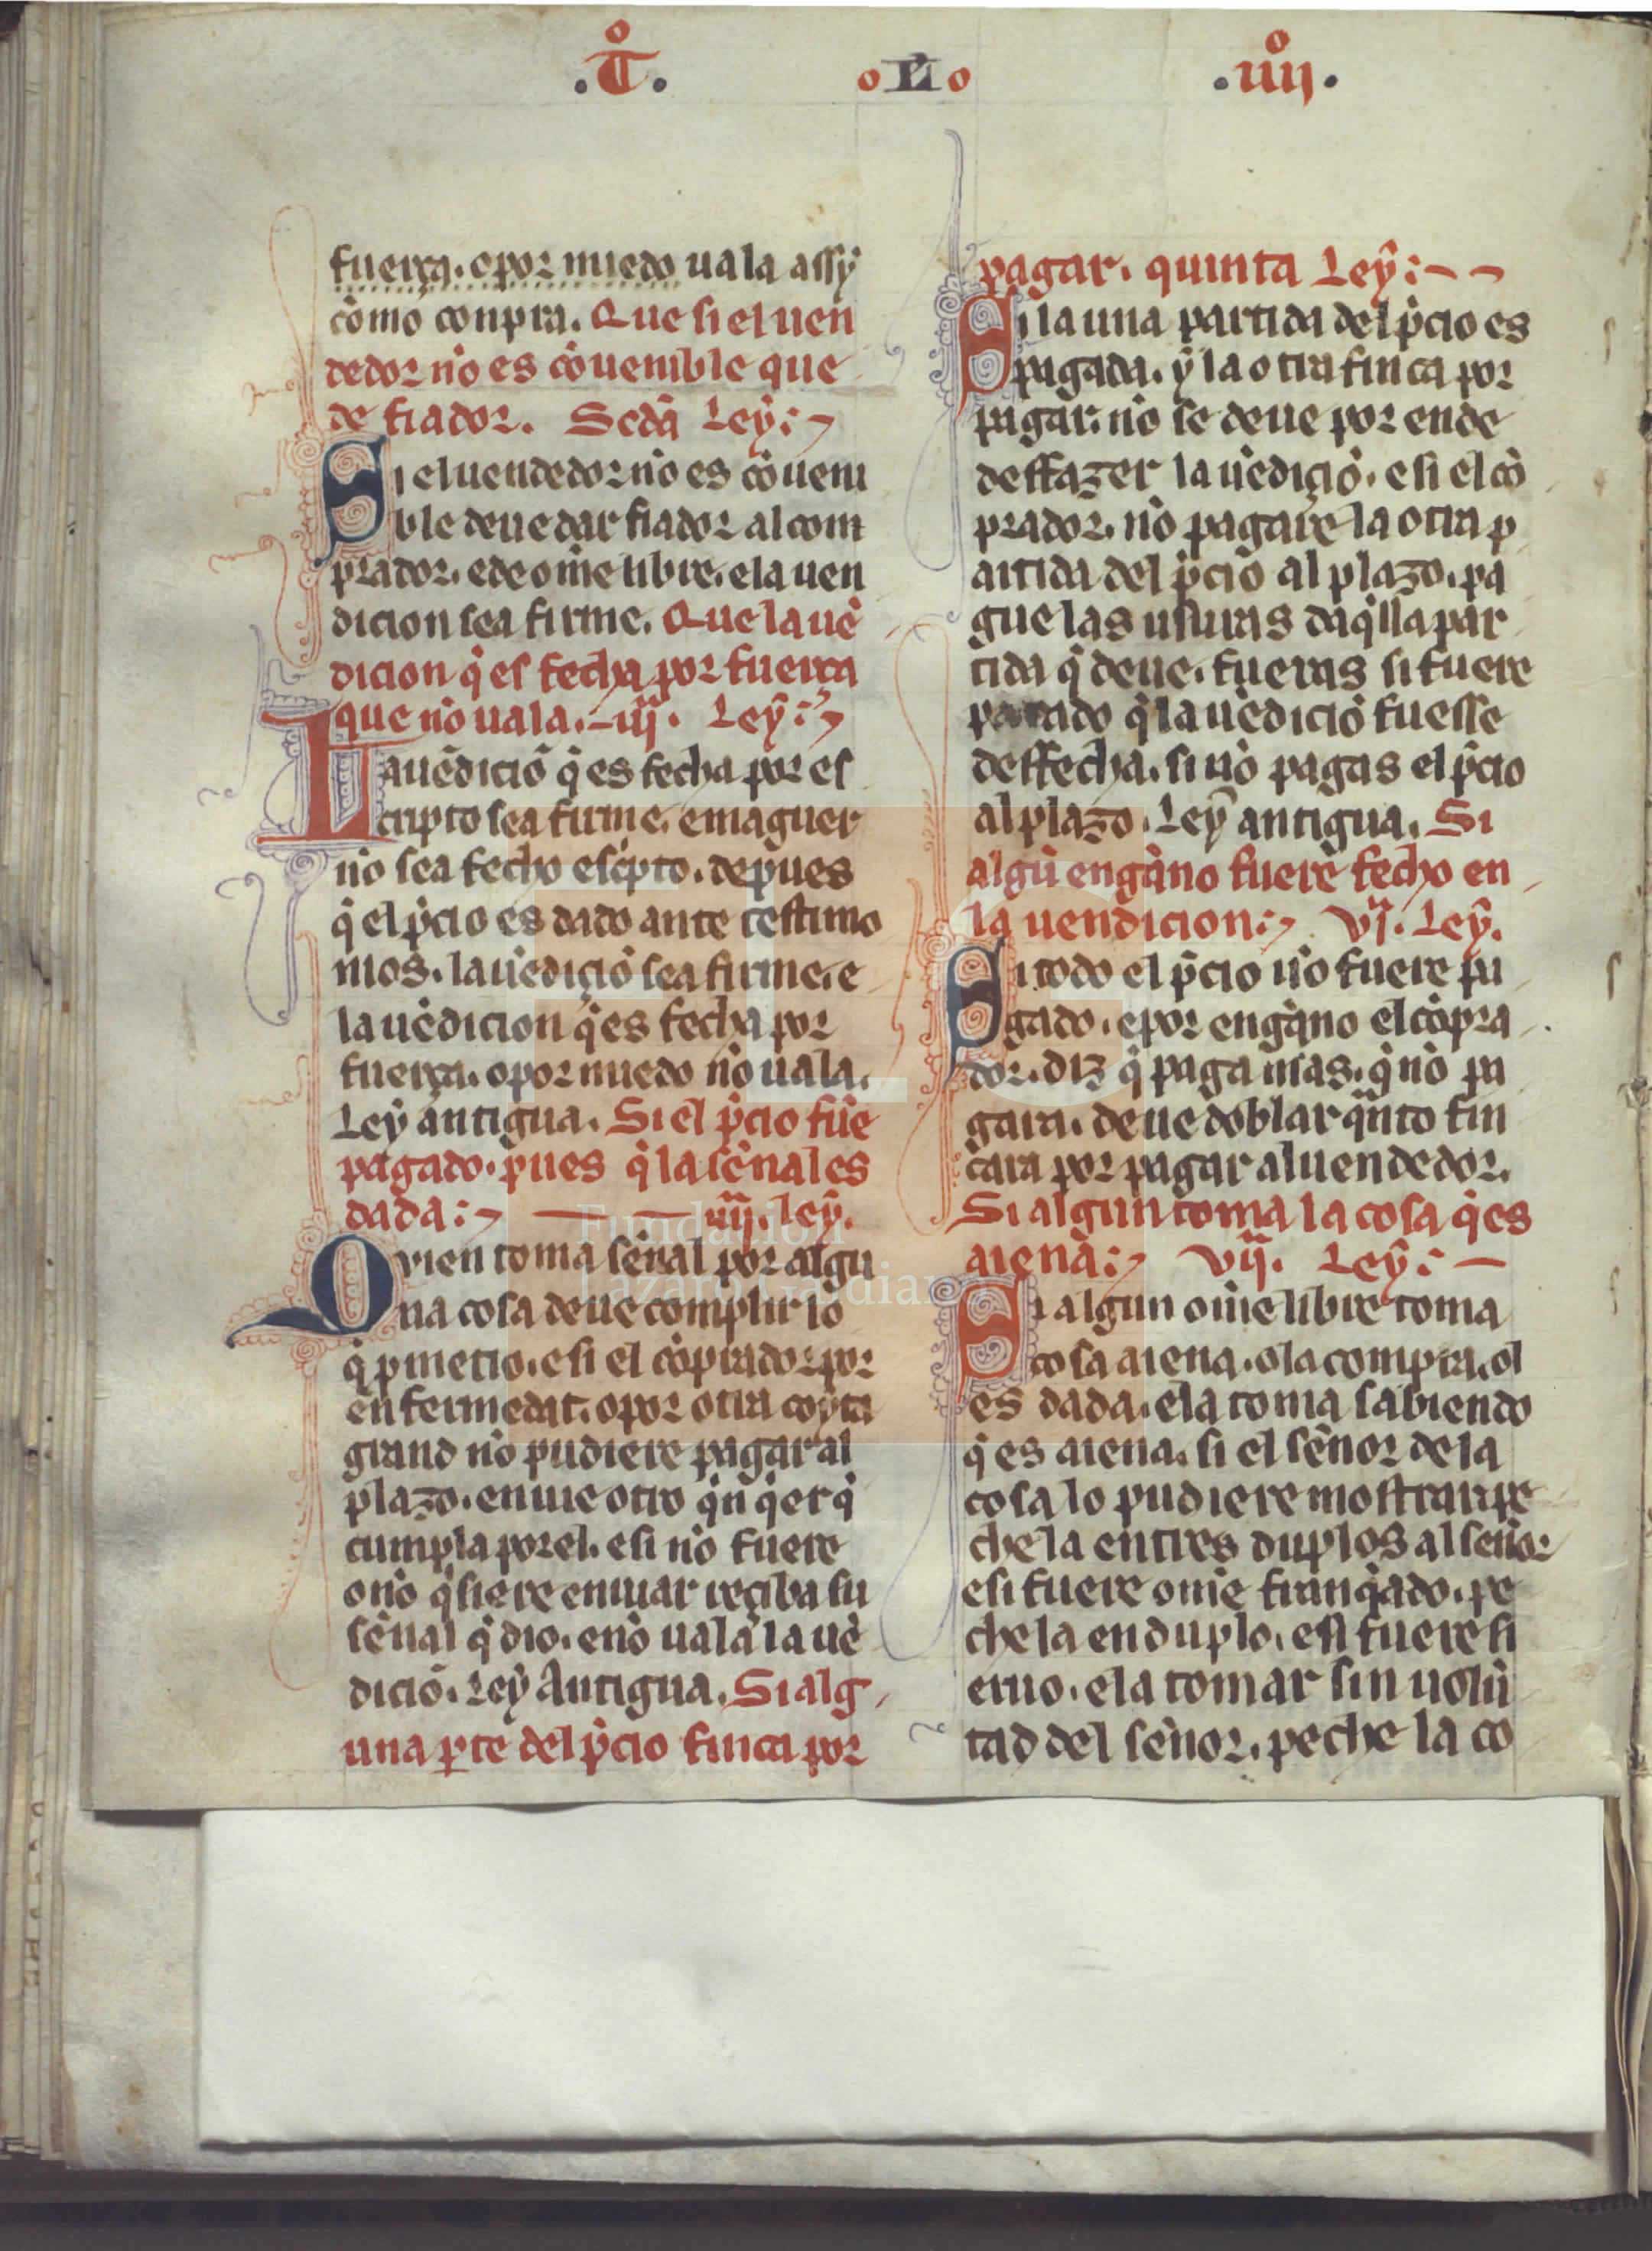 .T̊. oLio .iiij̊.
fuerça. o por miedo uala assy
cōmo conpra. Que si el uen
dedor nō es cōuenible que
de fiador. Scdā Ley:
Si el uendedor nō es cōueni
ble deue dar fiador al com
prador. e de om̄e libre. e la uen
dicion sea firme. Que la uē
dicion q̄ es fecha por fuerça
que nō uala. iij. Ley:
La uēdiciō q̄ es fecha por es
cripto sea firme. e maguer
nō sea fecho esc̄pto. depūes
q̄ el p̄cio es dado ante testimo
nios. la uēdiçiō sea firme. e
la uēdicion q̄ es fecha por
fuerça. o por miedo nō uala.
Ley antigua. Si el p̄cio fūe
pagado. pues q̄ la sēnal es
dada: iiij. ley.
Quien toma sēnal por algu
na cosa deue complir lo
q̄ pmetio. e si el cōprador por
enfermedat. o por otra coyta
grand nō pudiere pagar al
plazo. enuie otro q̄n q̄er q̄
cumpla por el. e si nō fuere
o nō q̄siere enuiar reçiba su
sēnal q̄ dio. e nō uala la uē
diciō. Ley Antigua. Si alg
una pte del p̄cio finca por
pagar. quinta Ley:
Si la una partida del p̄cio es
pagada. ẏ la otra finca por
pagar. nō se deue por ende
deffazer la uēdiçiō. e si el cō
prador. nō pagare la otra p
artida del p̄cio al plazo. pa
gue las usuras daq̄lla par
tida q̄ deue. fueras si fuere
parado q̄ la uēdiciō fuesse
deffecha. si nō pagas el p̄cio
al plazo. Ley antigua. Si
algū engāno fuere fecho en
la uendicion: vj. Ley.
Si todo el p̄cio nō fuere pa
gado. e por engāno el cōpra
dor. diz q̄ paga mas. q̄ nō pa
gara. deue doblar q̄nto fin
cara por pagar al uendedor.
Si algun toma la cosa q̄ es
aiena: vij. Ley:
Si algun om̄e libre toma
cosa aiena. o la compra. ol
es dada. e la toma sabiendo
q̄ es aiena. si el sēnor de la
cosa lo pudiere mostrar. pe
che la en tres duplos al sēnor
e si fuere om̄e franq̄ado. pe
che la en duplo. e si fuere si
eruo. e la tomar sin uolū
tad del sēnor. peche la co
FLG
Fundación
Lázaro Galdiano